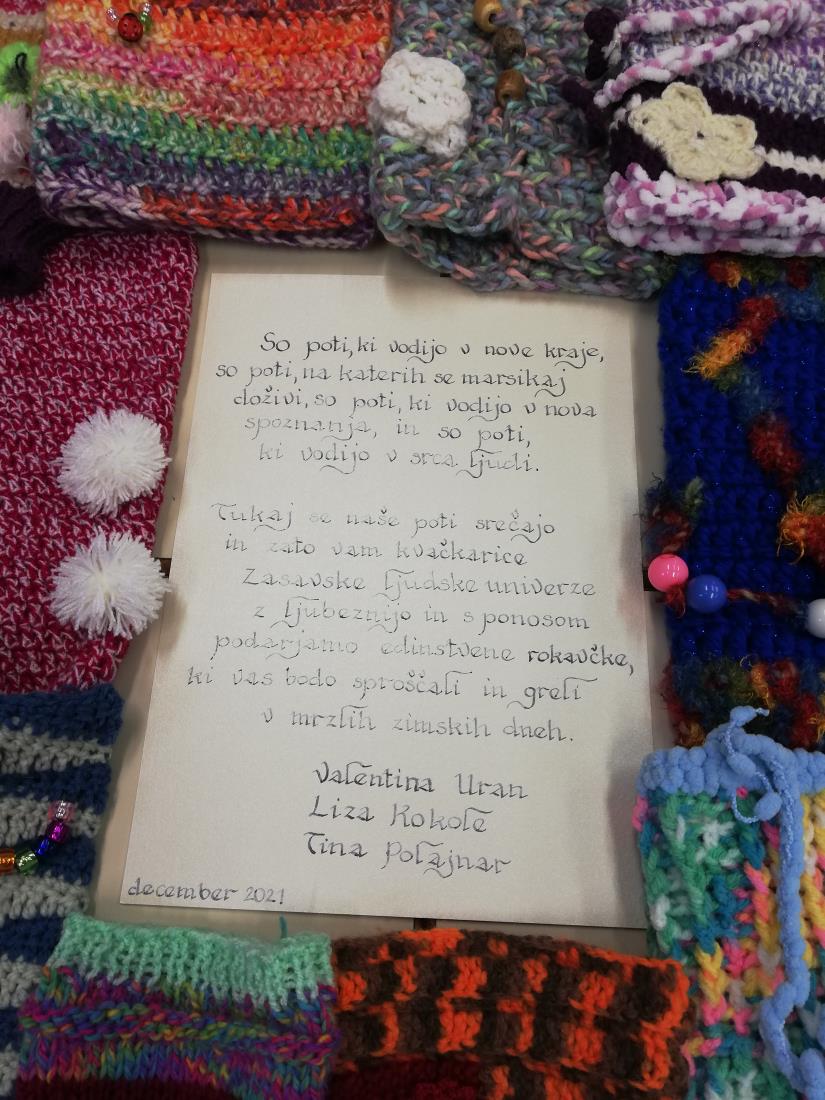 So poti, ki vodijo v nove kraje,
so poti, na katerih se marsikaj
doživi, so poti, ki vodijo v nova
spoznanja, in so poti,
ki vodijo v srca ljudi.
Tukaj se naše poti srečajo
in zato vam kvačkarice
Zasavske ljudske univerze
z ljubeznijo in s ponosom
podarjamo edinstvene rokavčke,
ki vas bodo sproščali in greli
v mrzlih zimskih dneh.
Valentina Uran
Liza Kokole
Tina Polajnar
december 2021